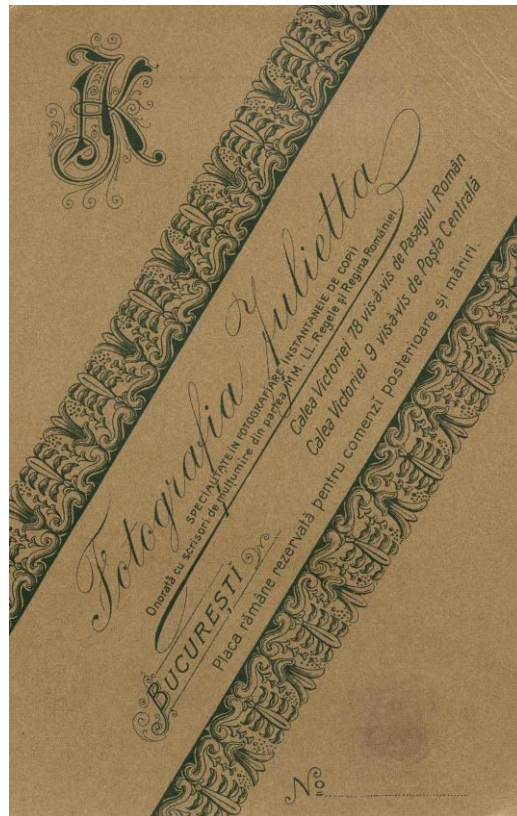 JK
Fotografia Julietta
SPECIALITATE IN FOTOGRAFIARE INSTANTANEIE DE COPII
Onorată cu scrisori de mulțumire din partea MM. LL. Regele și Regina României.
Calea Victoriei 78 vis-à-vis de Pasagiul Român
Calea Victoriei 9 vis-à-vis de Poșta Centrală
BUCUREȘTI
Placa rămâne rezervată pentru comenzi posterioare și măriri.
No